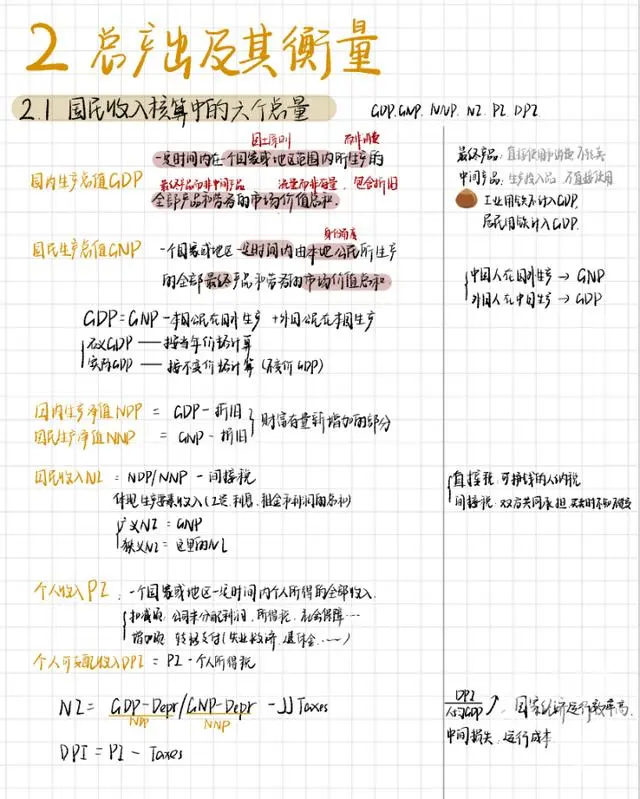 2 总产出及其衡量
2.1 国民收入核算中的六个总量
GDP. GNP. NNP. NI. PI. DPI
国土原则 而非消费
一定时间内在一个国家或地区范围内所生产的
国内生产总值GDP
最终产品而非中间产品 流量而非存量, 包含折旧
全部产品和劳务的市场价值总和.
最终产品: 直接使用和消费 不转卖
中间产品: 生产投入品 不直接使用
工业用 不计入GDP.
居民用 计入GDP.
身份角度
国民生产总值GNP 一个国家或地区一定时间内由本地公民所生产
的全部最终产品和劳务的市场价值总和
中国人在国外生产 → GNP
外国人在中国生产 → GDP
GDP = GNP - 本国公民在国外生产 + 外国公民在本国生产
名义GDP —— 按当年价格计算
实际GDP —— 按不变价格计算 (不变价GDP)
国内生产净值NDP = GDP - 折旧
国民生产净值NNP = GNP - 折旧
财富存量新增加的部分
国民收入NI = NDP/NNP - 间接税
体现生产要素收入(工资.利息.租金和利润的总和)
广义NI = GNP
狭义NI = 这里的NI
直接税. 可挣钱的人纳税
间接税. 双方共同承担.
个人收入PI. 一个国家或地区一定时间内个人所得的全部收入.
扣减项. 公司未分配利润. 所得税. 社会保障…
增加项 转移支付(失业救济. 退休金. ……)
个人可支配收入DPI = PI - 个人所得税
NI = GDP-Depr/GNP-Depr - JJ Taxes
NDP NNP
DPI = PI - Taxes
DPI
人均GDP ↗. 国家经济运行效率高.
中间损失. 运行成本